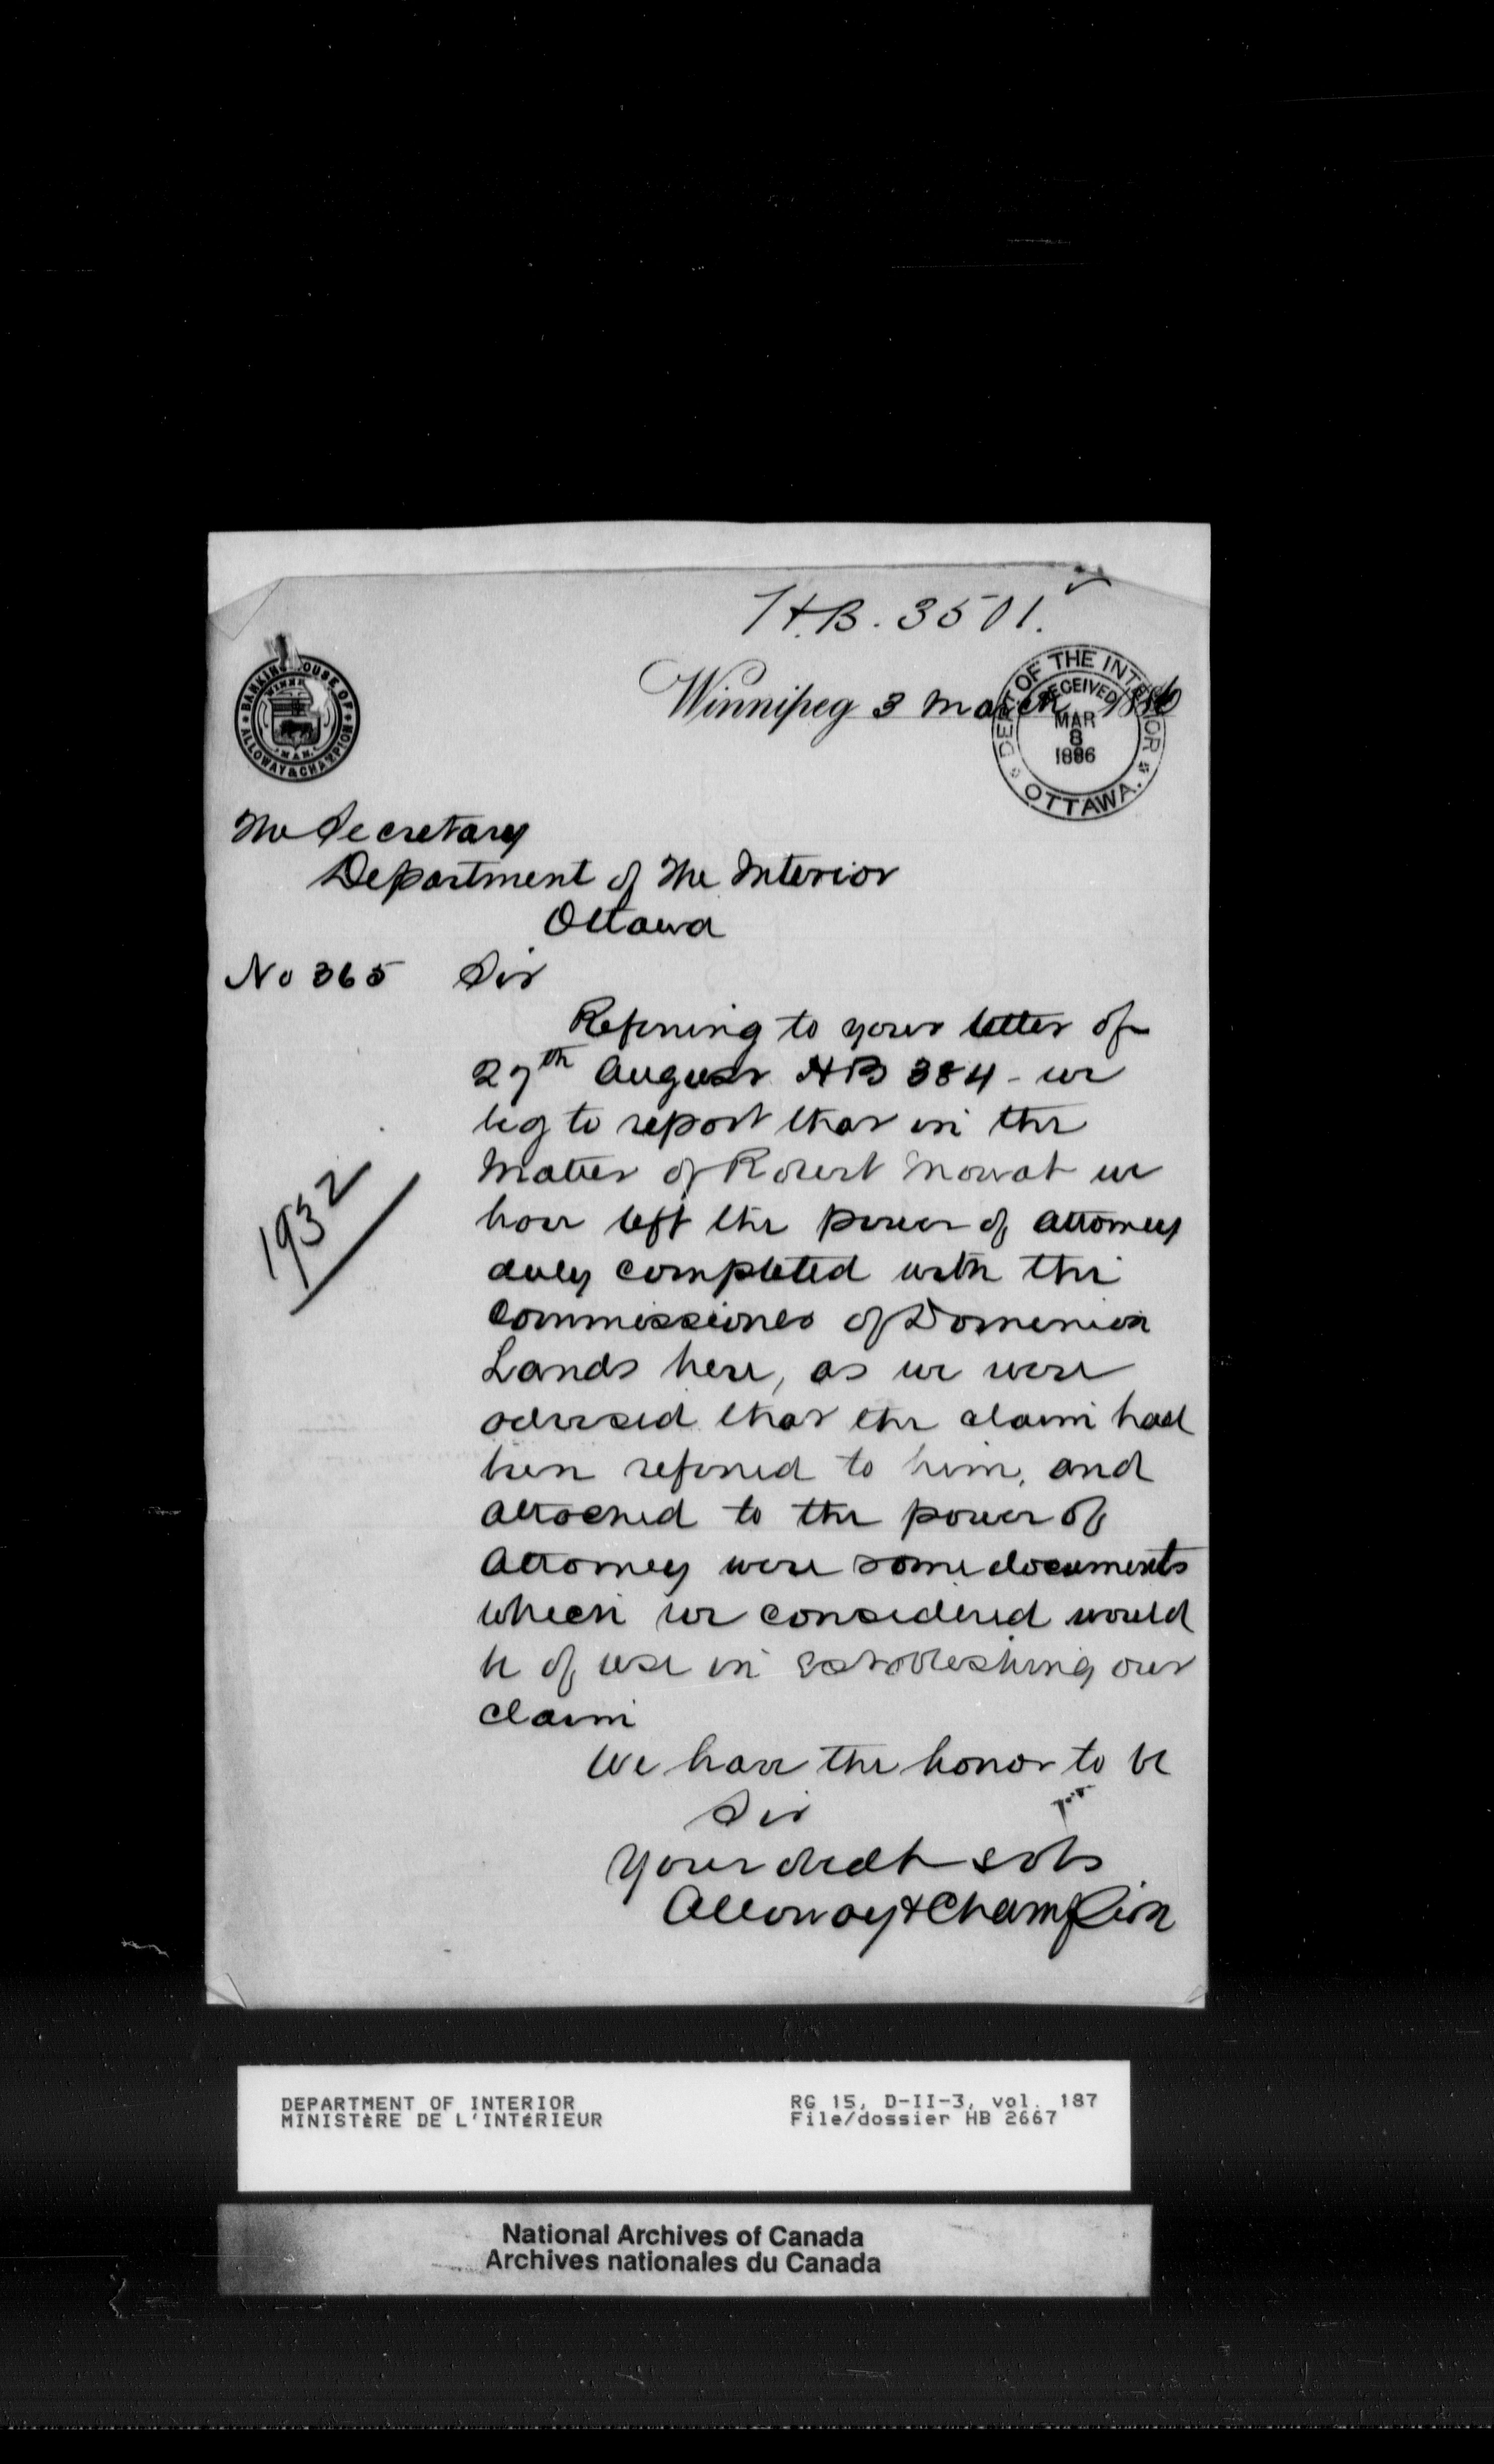 H.B. 3501.
BANKING HOUSE OF
ALLOWAY & CHAMPION
WINNG
MAN.
Winnipeg 3 March 1886
DEPT OF THE INTERIOR
RECEIVED
MAR
8
1886
OTTAWA.
The Secretary
Department of The Interior
Ottawa
No 365 Sir
Referring to your letter of
27th August HB 384 - we
beg to report that in the
matter of Robert Mowat we
have left the power of attorney
duly completed with the
Commissioner of Dominion
Lands here, as we were
advised that the claim had
been referred to him, and
attached to the power of
Attorney were some documents
which we considered would
be of use in establishing our
claim
1932
We have the honor to be
Sir
Your obedt svts
Alloway & Champion
DEPARTMENT OF INTERIOR
MINISTÈRE DE L'INTÉRIEUR
RG 15, D-II-3, vol. 187
File/dossier HB 2667
National Archives of Canada
Archives nationales du Canada